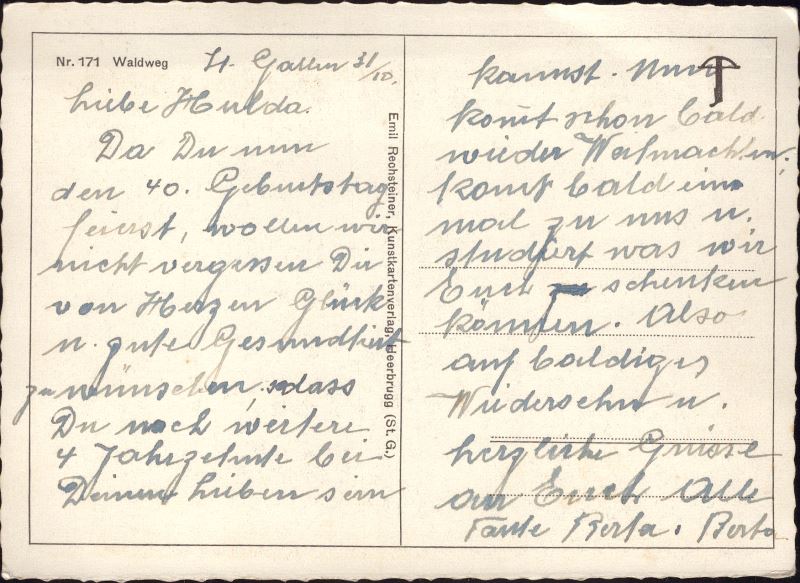 Nr. 171 Waldweg
St. Gallen 31/10.
Liebe Hulda.
Da Du nun
den 40. Geburtstag
feierst, wollen wir
nicht vergessen Dir
von Herzen Glück
u. gute Gesundheit
zu wünschen, dass
Du noch weitere
4 Jahrzehnte bei
Deinen Lieben sein
Emil Rechsteiner, Kunstkartenverlag, Heerbrugg (St. G.)
kannst. Nun
komt schon bald
wieder Weihnachten,
komt bald ein
mal zu uns u.
studiert was wir
Euch schenken
können. Also
auf baldiges
Wiedersehn u.
herzliche Grüsse
an Euch Alle
Tante Berta. Berta